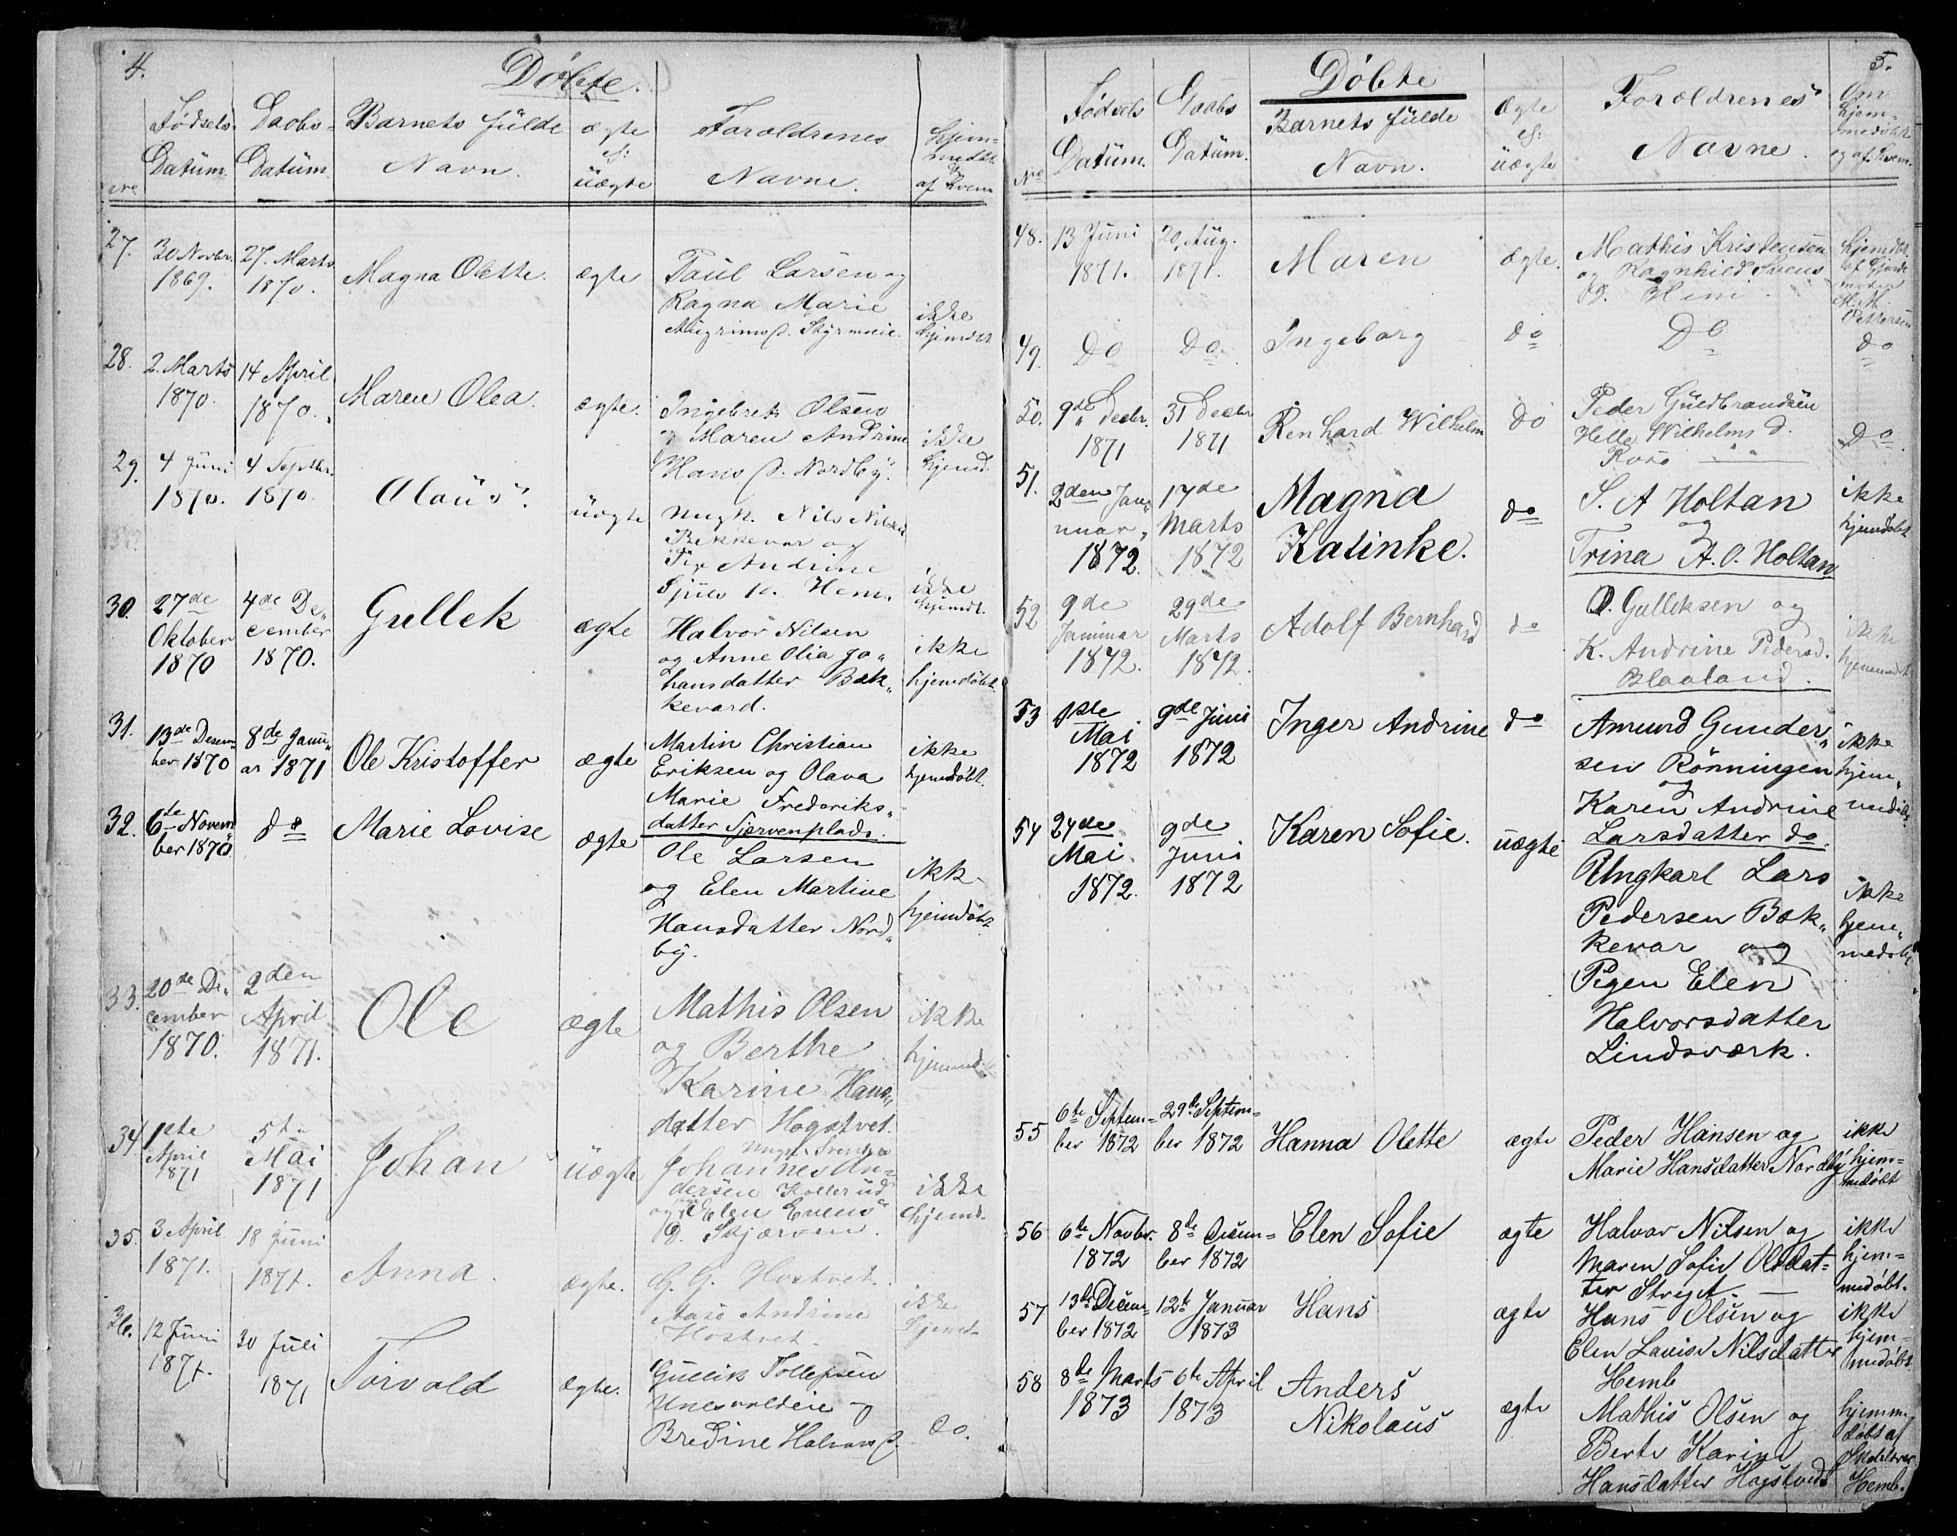 4.
Döbte.
No
Födsels-
Datüm.
Daabs-
Datüm.
Barnets fülde
Navn.
ægte
el:
üægte
Foraldrenes
Navne.
hjem-
af Hvem
27.
30 Novbr.
1869.
27. Marts
1870.
Magna Olette.
ægte
Paul Larsen og
Ragna Marie
ikke
hjemdøt
28.
2. Marts
1870.
14 April
1870.
Maren Olea.
ægte.
Ingebret Olsen
og Maren Andrine
Hans D. Nordby.
ikke
hjemd.
29.
4 Juni
1870.
4 Septbr.
1870
Olaüs.
üægte
Ungk. Nils Nilsen
Bekkevar og
Andrine
ikke
hjemdt.
30.
27de
Oktober
1870
4de De-
cember
1870.
Gullek
ægte
Halvor Nilsen
og Anne Olia Jo-
hansdatter Bak-
kevard.
ikke
hjemdøbt.
31.
13de Desem-
ber 1870
8de Janu-
ar 1871
Ole Kristoffer
ægte
Martin Christian
Eriksen og Olava
Marie Frederiks-
datter Sjærvenplads.
ikke
hjemdøbt.
32.
6te Novem-
ber 1870
do
Marie Lovise
ægte
Ole Larsen
og Elen Martine
Hansdatter Nord-
by.
ikke
hjemdøbt
33.
20de De-
cember
1870.
2den
April
1871.
Ole
ægte
Mathis Olsen
og Berthe
Karine Hans-
datter Hogstvet.
ikke
hjemmed.
34
1ste
April
1871
5te
Mai
1871
Johan
üægte
Johannes An-
dersen Kollerud
og Elen Evens
D. Skjærven.
ikke
hjemd.
35.
3 April
1871.
18 Juni
1871.
Anna.
ægte.
G. G. Hostvet.
Aase Andrine
Hostvet
ikke
hjemd.
36.
12 Juni
1871.
30 Juli
1871
Torvald
ægte.
Gullik Tollefsen
og
Bredine Halvors D.
do.
5.
Döbte
No
Födsels
Datüm.
Daabs
Datüm.
Barnets fülde
Navn.
Ægte
el:
üægte
Foraldrenes
Navne.
Om
hjem-
medøbt
og af hvem.
48.
13 Juni
1871.
20. Aug.
1871.
Maren
ægte.
Mathis Kristensen
og Ragnhild
D. Hem.
hjemdbt.
af Gjorde
moder
Pettersen
49.
Do
Do.
Ingeborg
do
Do
do
50.
9de Decbr.
1871
31 Decbr
1871
Renhard Wilhelm
do
Peder Guldbrandsen
Helle Wilhelms D.
Do.
51.
2den Jan-
nuar,
1872.
17de
Marts
1872
Magna
Katinke.
do
S. A Holtan
og
Trina A. O. Holtan
ikke
hjemdøbt
52
9de
Januar
1872.
29de
Marts
1872.
Adolf Bernhard
do
O. Gulleksen og
K. Andrine Pedersd.
Blaaland.
ikke
hjemmdt
53
1ste
Mai
1872
9de Juni
1872
Inger Andrine
do
Amund Gunder-
sen Rönningen
og
Karen Andrine
Larsdatter do.
ikke
hjem-
54
24de
Mai.
1872.
9de
Juni
1872
Karen Sofie.
uægte
Ungkarl Lars
Pedersen Bæk-
kevar og
Pigen Elen
Halvorsdatter
Lindsværk.
ikke
hjem-
medøbt
55
6te Septem-
ber 1872
29de Septem-
ber 1872
Hanna Olette
ægte
Peder Hansen og
Marie Hansdatter Nordby
ikke
hjem-
medøbt
56
6te Novbr.
1872
8de Desem-
ber 1872
Elen Sofie
ægte
Halvor Nilsen og
Maren Sofie Olsdat-
ter Striget.
ikke
hjem-
medøbt.
57
13de Decem-
ber 1872
12te Januar
1873
Hans
ægte
Hans Olsen og
Elen Lovise Nilsdatter
Hemb
ikke
hjem-
medøbt
58
8de Marts
1873
6te April
1873
Anders
Nikolaus
ægte
Mathis Olsen og
Berte Karine
Hansdatter Hogstvedt
hjemme-
døbt af
Skolelærer
Hemb.